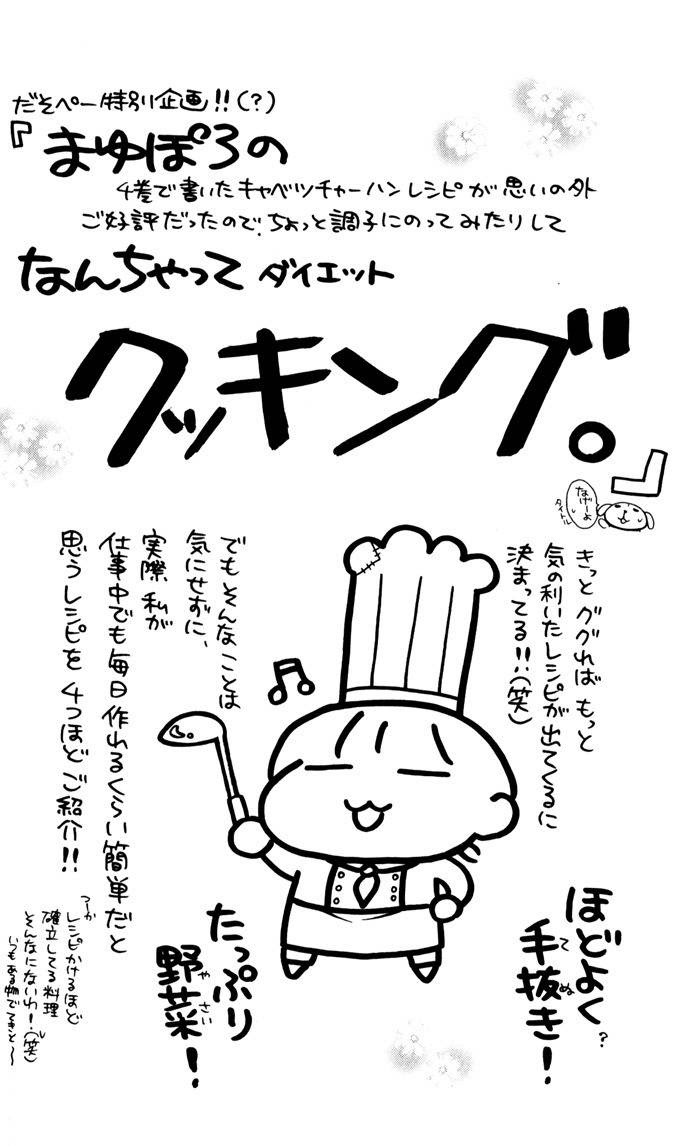 だそペー特別企画!!(?)
『まゆぽろの
4巻で書いたキャベツチャーハンレシピが思いの外
ご好評だったので、ちょっと調子にのってみたりして
なんちゃってダイエット
クッキング。』
なげーよ
タイトル
きっとググればもっと
気の利いたレシピが出てくるに
決まってる!!(笑)
でもそんなことは
気にせずに、
実際私が
仕事中でも毎日作れるくらい簡単だと
思うレシピを4つほどご紹介!!
ほどよく?
手抜き!
てぬ
たっぷり
野菜!
やさい
つーか
レシピかけるほど
確立してる料理
そんなにないわ!(笑)
いつもある物でてきと〜〜